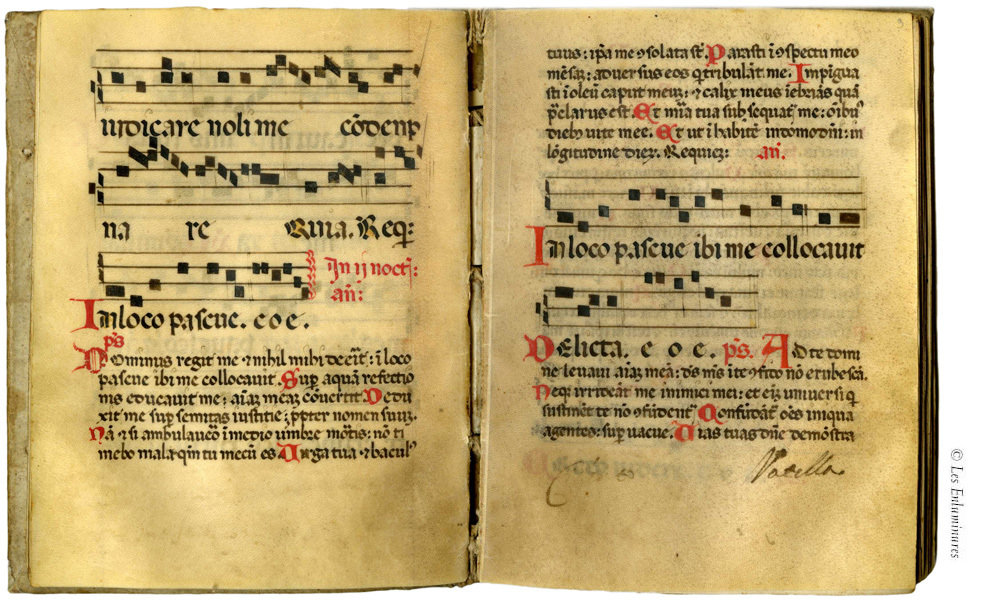 iudicare noli me cōdenp
na re Quia. Req:
In ij noct:
añ:
In loco pascue. e o e.
ps
Dominus regit me & nihil mihi deerit: ī loco
pascue ibi me collocauit. Sup aquā refectio
nis educauit me: aīaȝ meaȝ cōuertit. Dedu
xit me sup semitas iustitie: ꝓpter nomen suuȝ.
Nā & si ambulauero ī medio umbre mortis: nō ti
mebo mala: qm̄ tu mecū es. Uirga tua & bacul'
tuus: ip̄a me ꝯsolata st̄. Parasti ī ꝯspectu meo
mēsaȝ: aduersus eos q̄ tribulāt me. Impīgua
sti ī oleū caput meuȝ: & calix meus īebriās quā
p̄clarus est. Et mīa tua subsequat᷑ me: oībus
dieb; uite mee. Et ut ī habitē in domo dñi: in
lōgitudine dieȝ. Requieȝ: añ.
In loco pascue ibi me collocauit
Delicta. e o e. ps. Ad te domi
ne leuaui aīaȝ meā: ds̄ ms̄ ī te ꝯfido nō erubescā.
Neqȝ irrideāt me inimici mei: et eīȝ uniuersi q̄
sustinēt te nō ꝯfūdent᷑. Confūdāt᷑ oēs iniqua
agentes: supuacue. Uias tuas dn̄e demōstra
© Les Enluminures